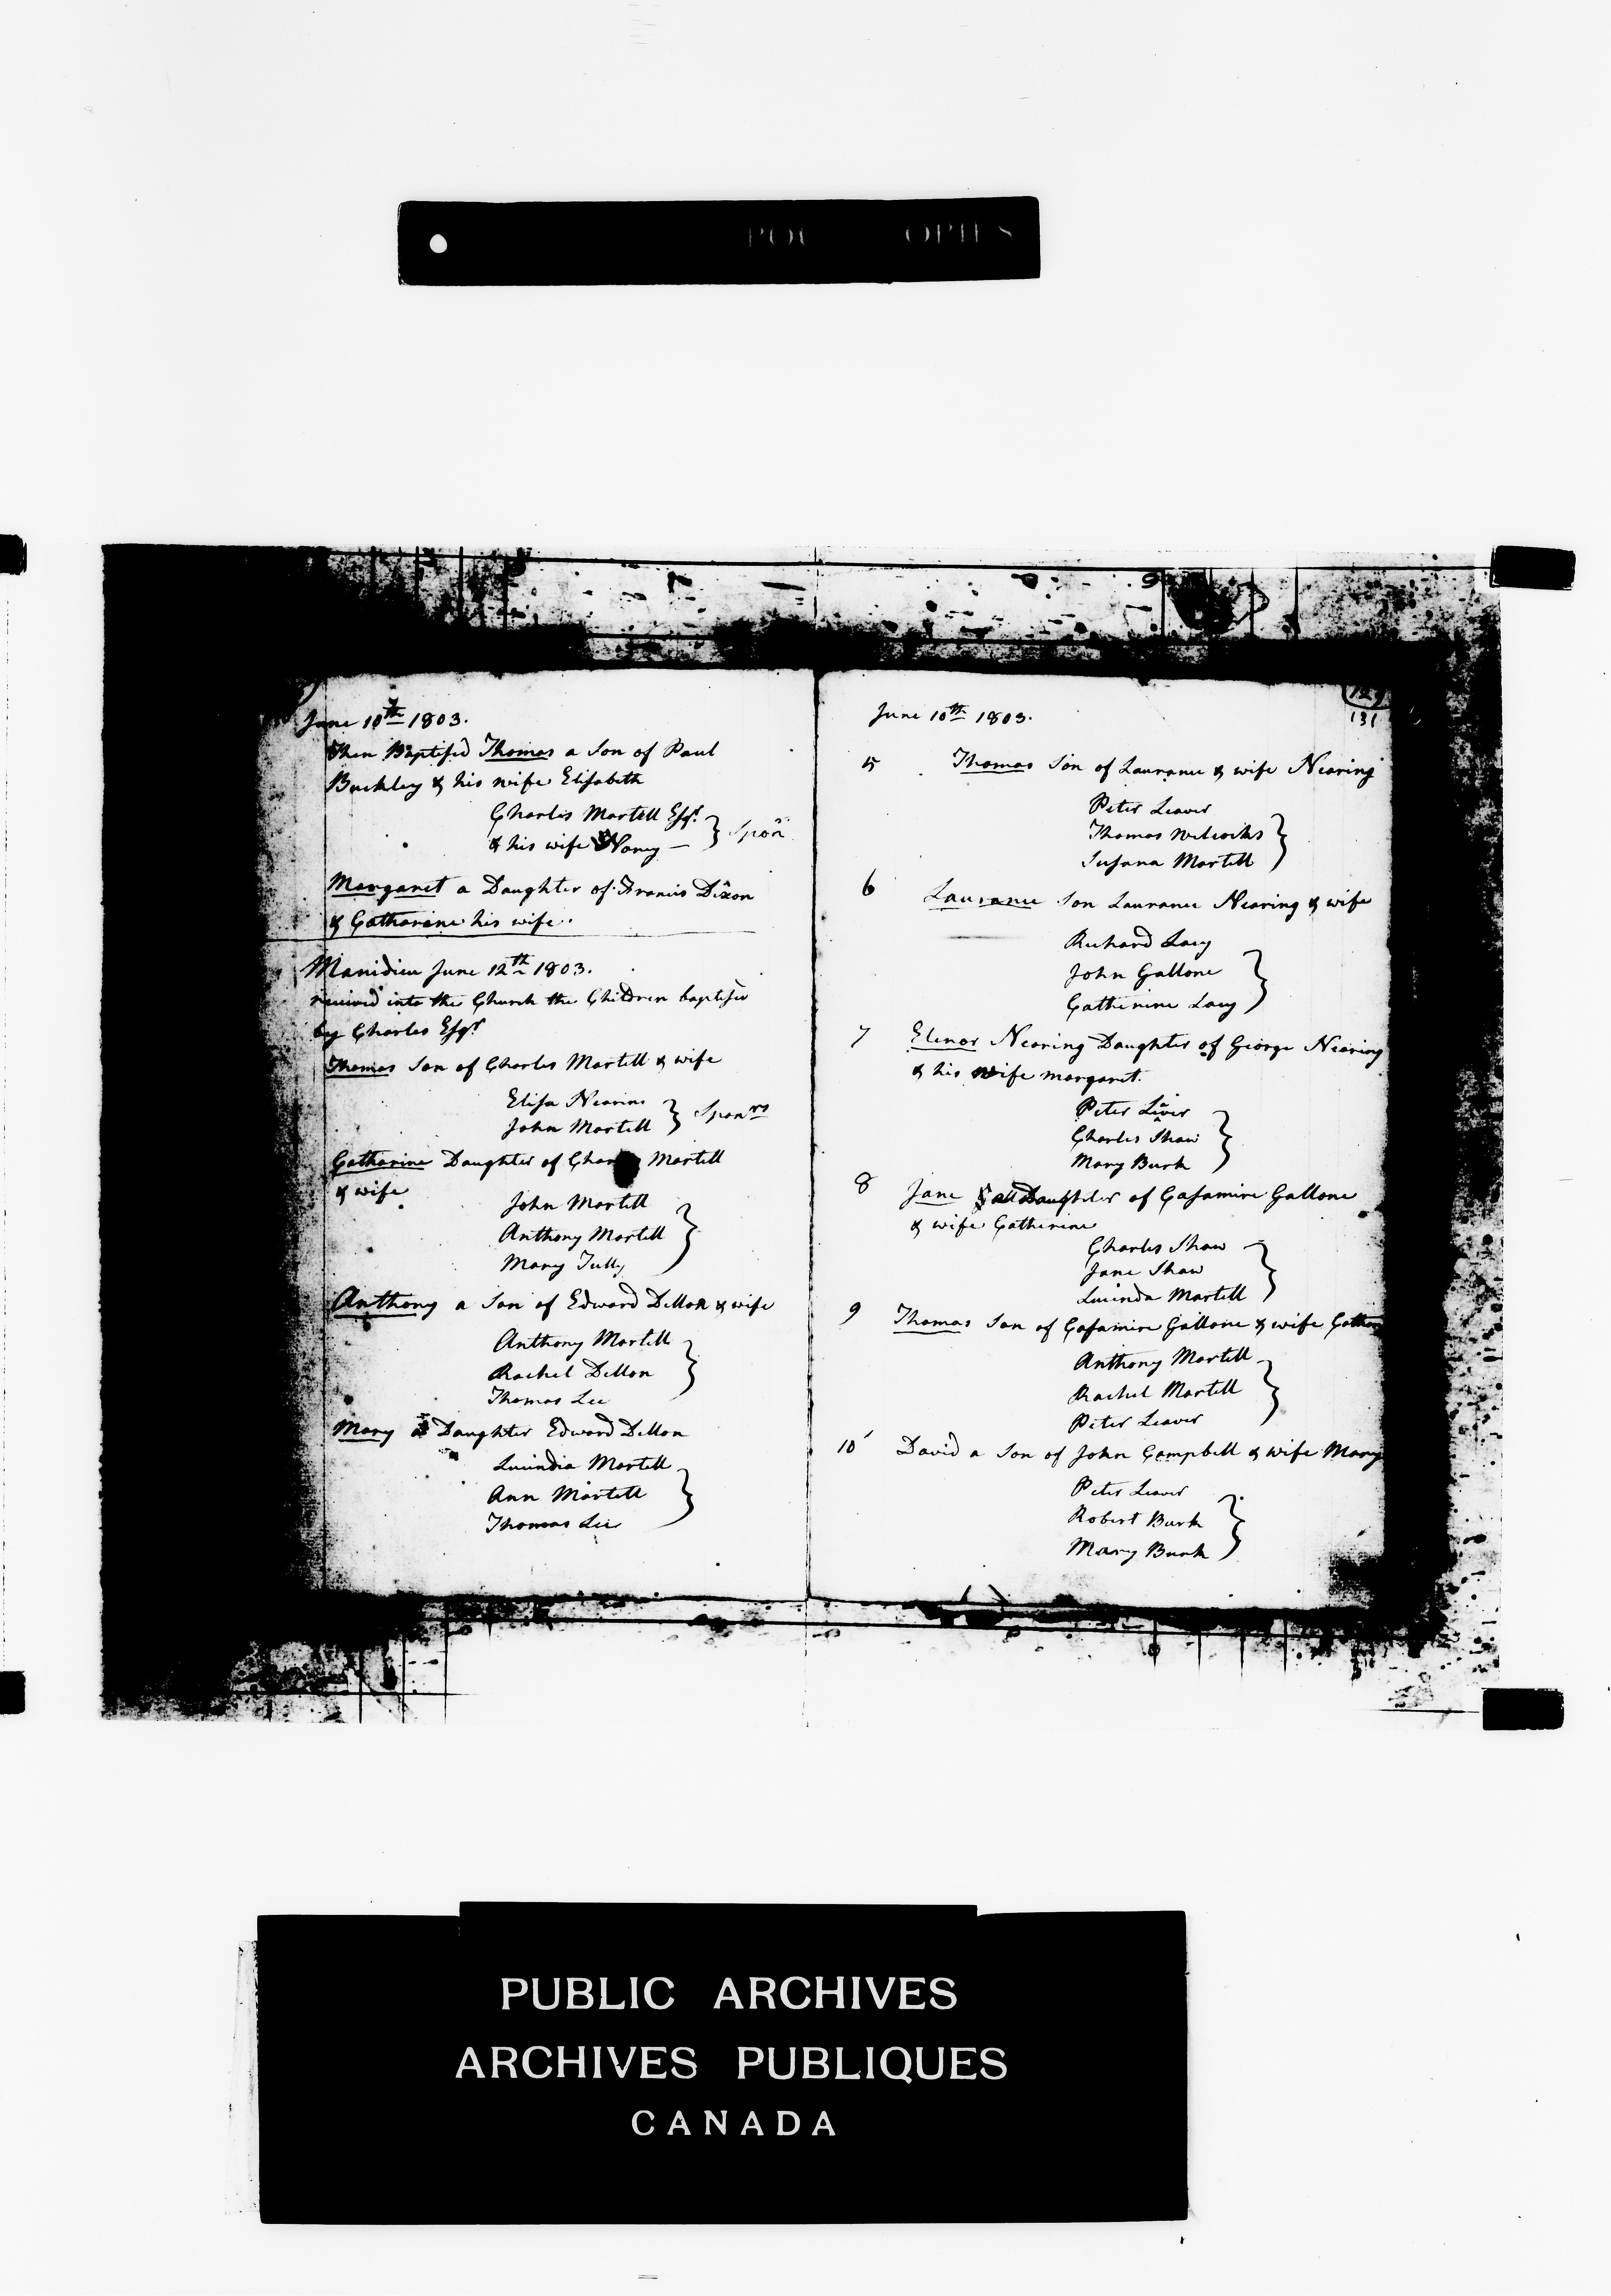 June 10th 1803.
Then Baptised Thomas a Son of Paul
Buckley & his wife Elisabeth
Charles Martell Esqr.
& his wife Nancy — } Spon
Margaret a Daughter of Francis Dixon
& Catharine his wife.
Manidieu June 12th 1803.
received into the Church the Children baptised
by Charles Esqr
Thomas Son of Charles Martell & wife
Elisa Nearins
John Martell } Sponrs
Catharine Daughter of Martell
& wife
John Martell
Anthony Martell
Mary Tully
Anthony a Son of Edward Dillon & wife
Anthony Martell
Rachel Dillon
Thomas Lee
Mary a Daughter Edward Dillon
Lucindia Martell
Ann Martell
Thomas Lee
131
June 10th 1803.
5 Thomas Son of Laurance & wife Nearing
Peter Leaver
Thomas Wilcocks
Susana Martell
6 Laurance Son Laurance Nearing & wife
Richard Lacy
John Gallone
Catherine Lacy
7 Elenor Nearing Daughter of George Nearing
& his wife Margaret.
Peter Leaver
Charles Shaw
Mary Burk
8 Jane Daughter of Casamire Gallone
& wife Catherine
Charles Shaw
Jane Shaw
Lucinda Martell
9 Thomas Son of Casamire Gallone & wife
Anthony Martell
Rachel Martell
Peter Leaver
10 David a Son of John Campbell & wife Mary
Peter Leaver
Robert Burk
Mary Burk
PUBLIC ARCHIVES
ARCHIVES PUBLIQUES
CANADA